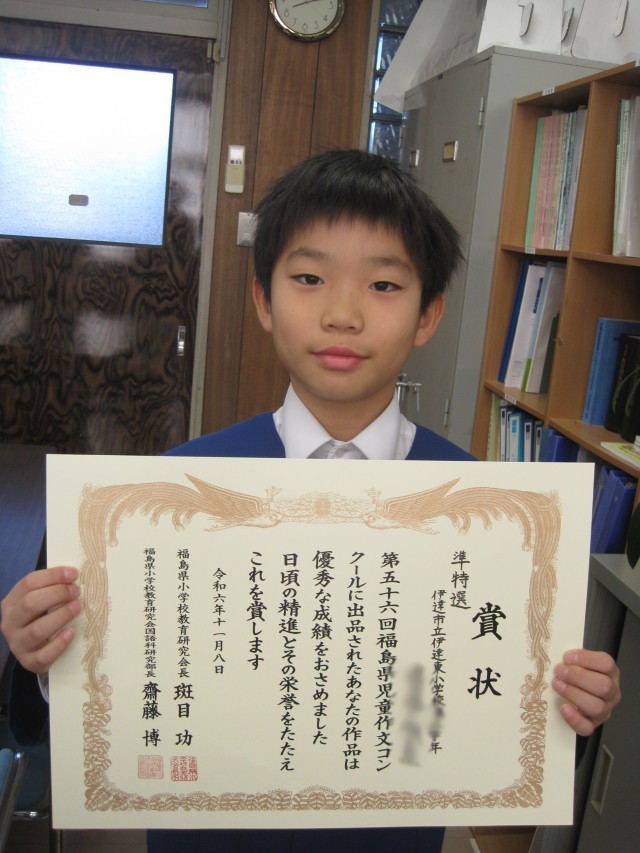 賞状
準特選
伊達市立伊達東小学校
年
第五十六回福島県児童作文コン
クールに出品されたあなたの作品は
優秀な成績をおさめました
日頃の精進とその栄誉をたたえ
これを賞します
令和六年十一月八日
福島県小学校教育研究会長 斑目 功
福島県小学校教育研究会国語科研究部長 齋藤 博